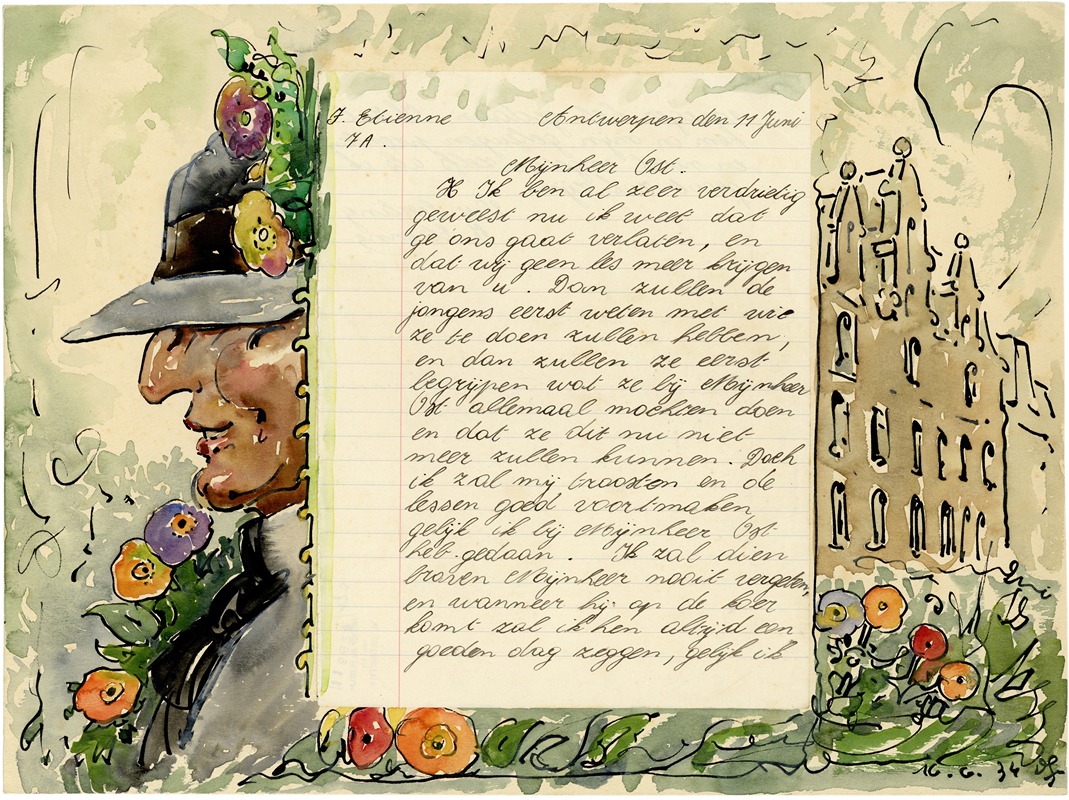 J. Etienne Antwerpen den 11 Juni
7A.
Mijnheer Ost.
H Ik ben al zeer verdrietig
geweest nu ik weet dat
ge ons gaat verlaten, en
dat wij geen les meer krijgen
van u. Dan zullen de
jongens eerst weten met wie
ze te doen zullen hebben,
en dan zullen ze eerst
begrijpen wat ze bij Mijnheer
Ost allemaal mochten doen
en dat ze dit nu niet
meer zullen kunnen. Doch
ik zal mij troosten en de
lessen goed voortmaken
gelijk ik bij Mijnheer Ost
heb gedaan. Ik zal dien
braven Mijnheer nooit vergeten,
en wanneer hij op de koer
komt zal ik hen altijd een
goeden dag zeggen, gelijk ik
16.6.34